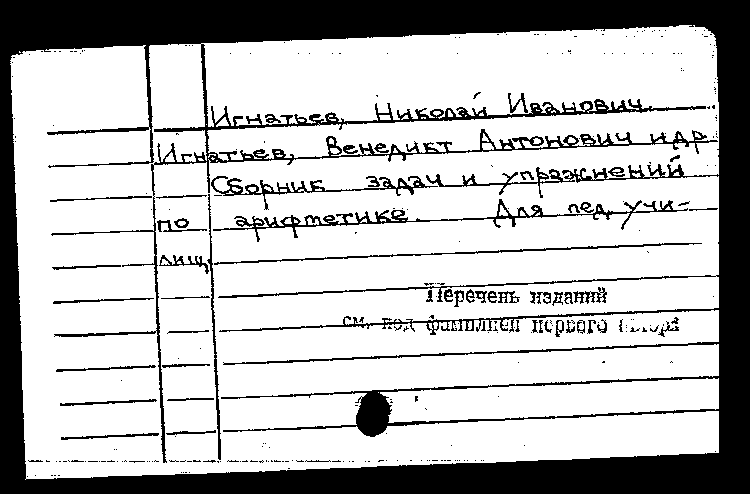 Игнатьев, Николай Иванович.
Игнатьев, Венедикт Антонович и др
Сборник задач и упражнений
по арифметике. Для пед. учи-
лищ.
Перечень изданий
см. под фамилией первого автора